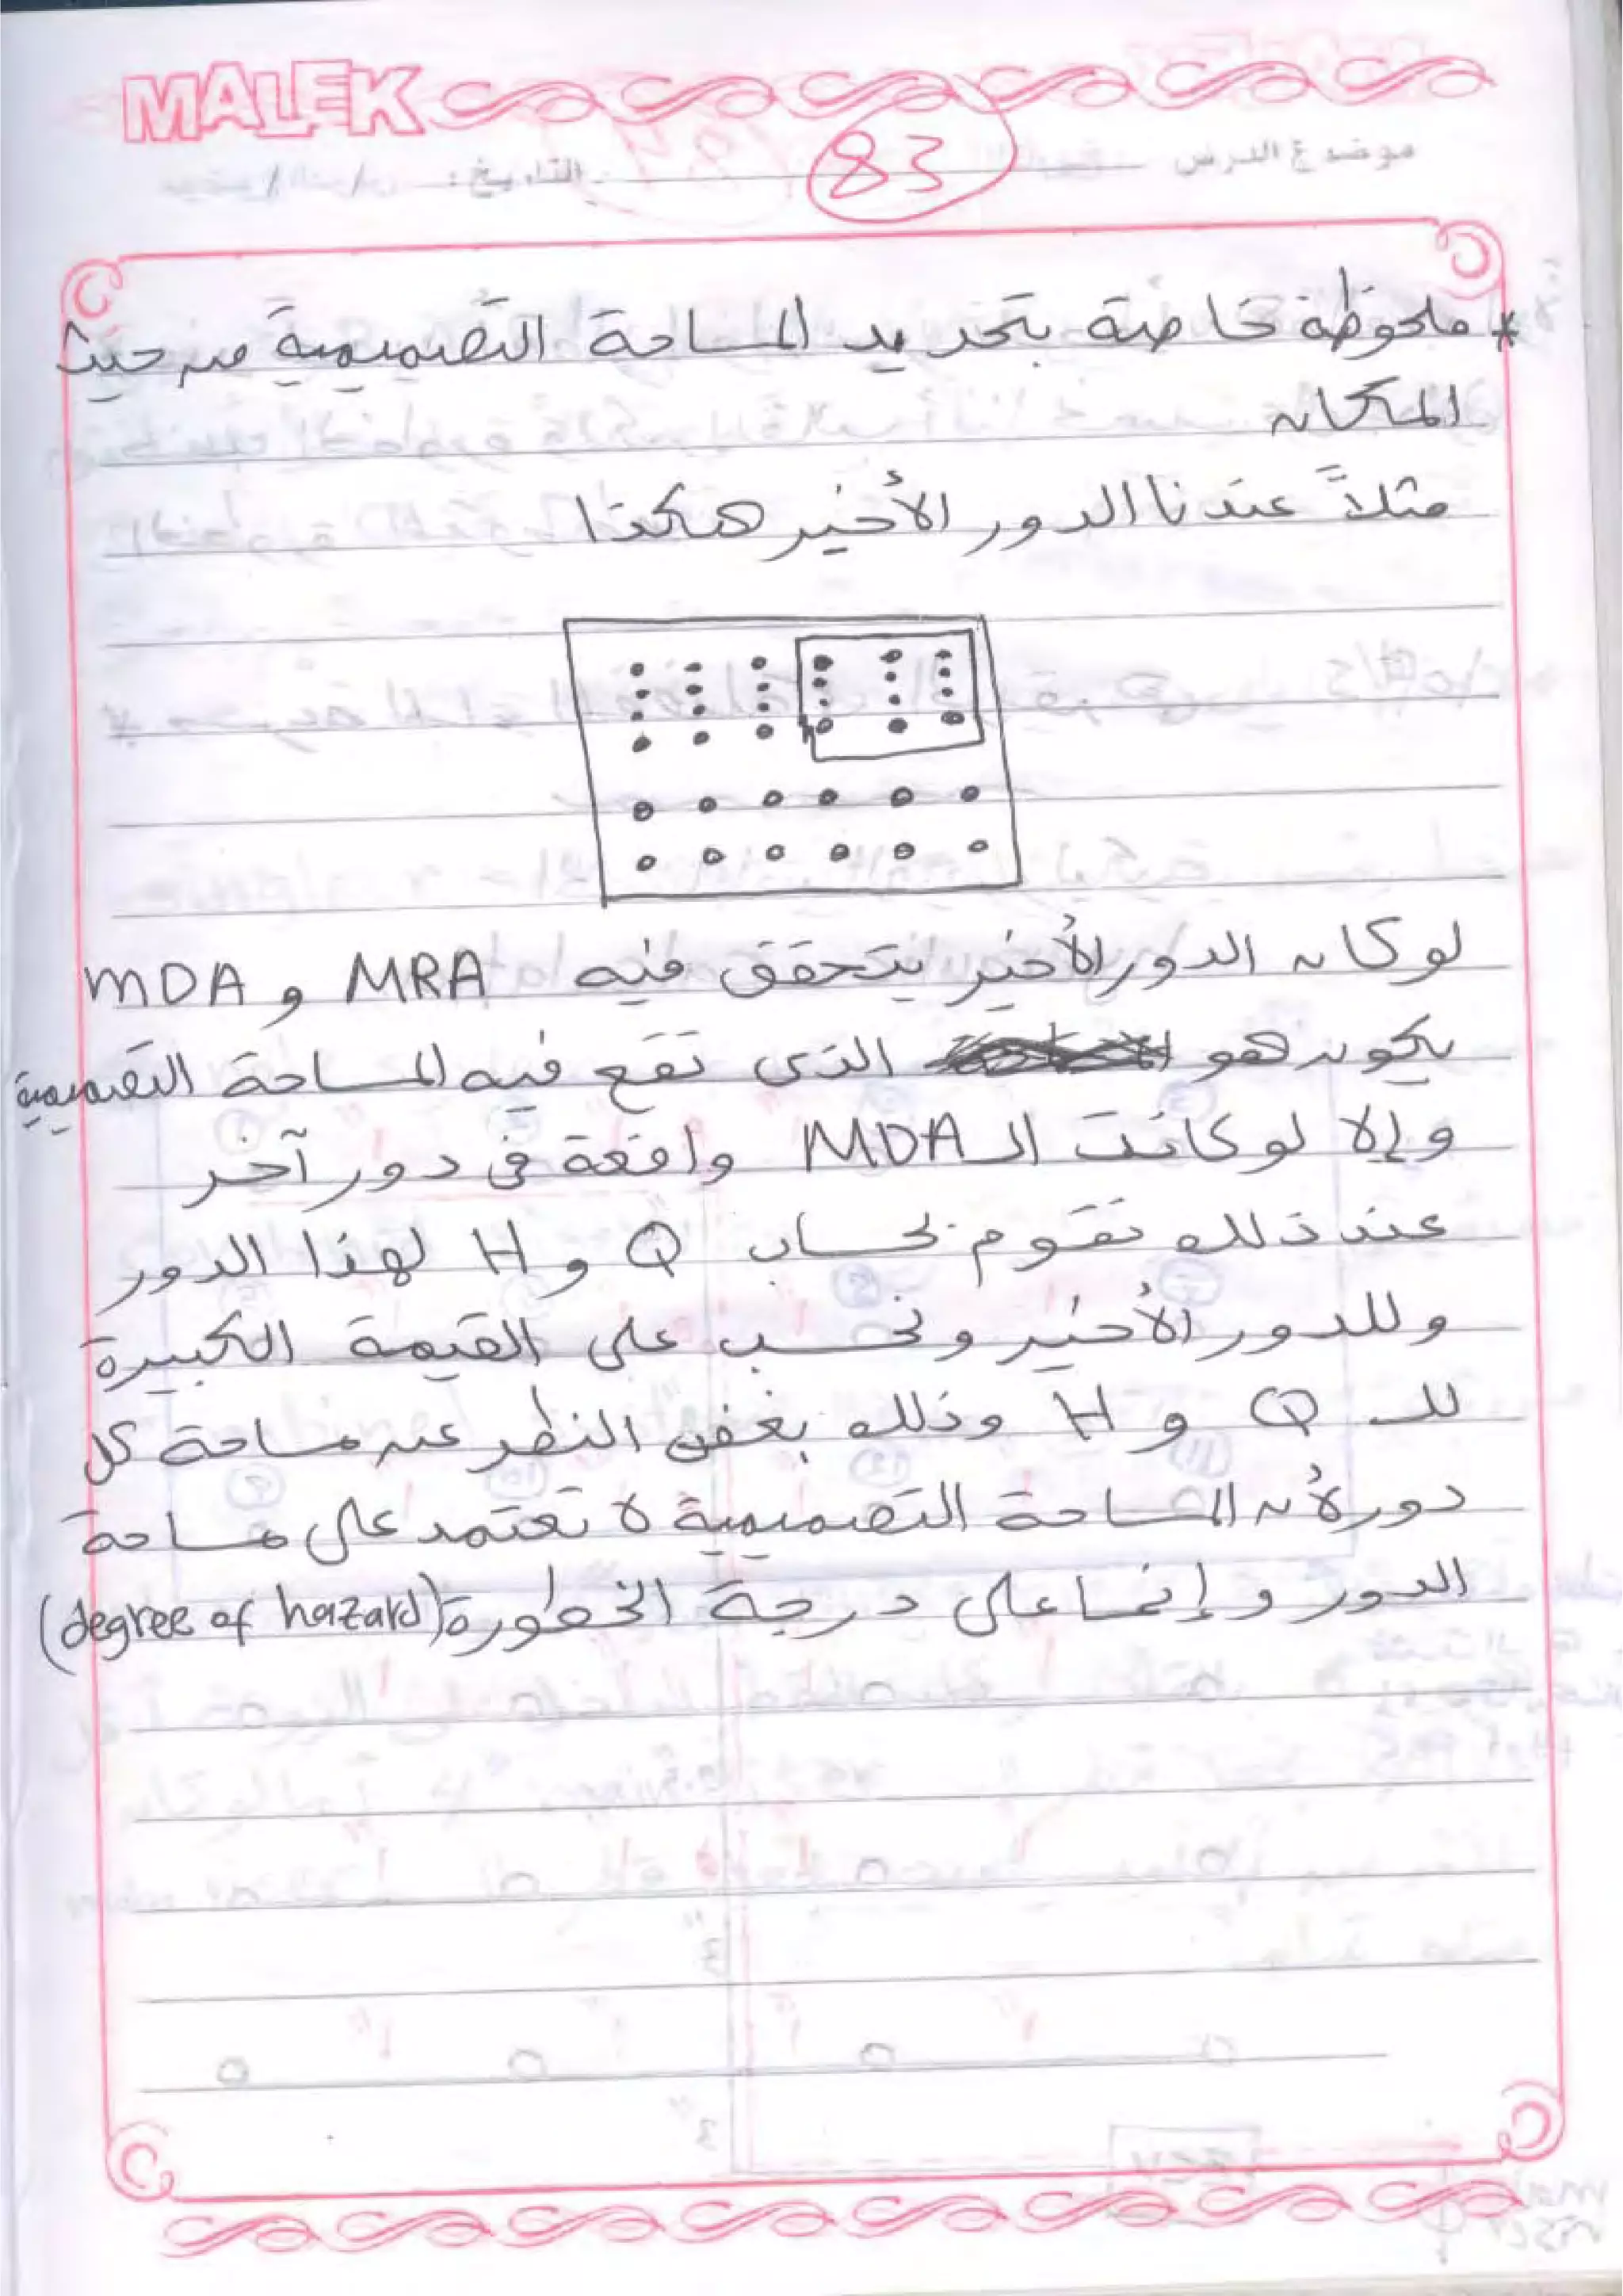 MALEK
83
موضوع الدرس
التاريخ: / /
* ملحوظة خاصة بتحديد المساحة التصميمية من حيث
المكان
مثلاً عندنا الدور الأخير هكذا
لو كان الدور الأخير يتحقق فيه MRA و MDA
يكون هو الذى تقع فيه المساحة التصميمية
وإلا لو كانت الـ MDA واقعة فى دور آخر
عند ذلك نقوم بحساب Q و H لهذا الدور
وللدور الأخير ونحسب على القيمة الكبيرة
للـ Q و H وذلك بغض النظر عن مساحة كل
دور لأن المساحة التصميمية لا تعتمد على مساحة
الدور وإنما على درجة الخطورة (degree of hazard)